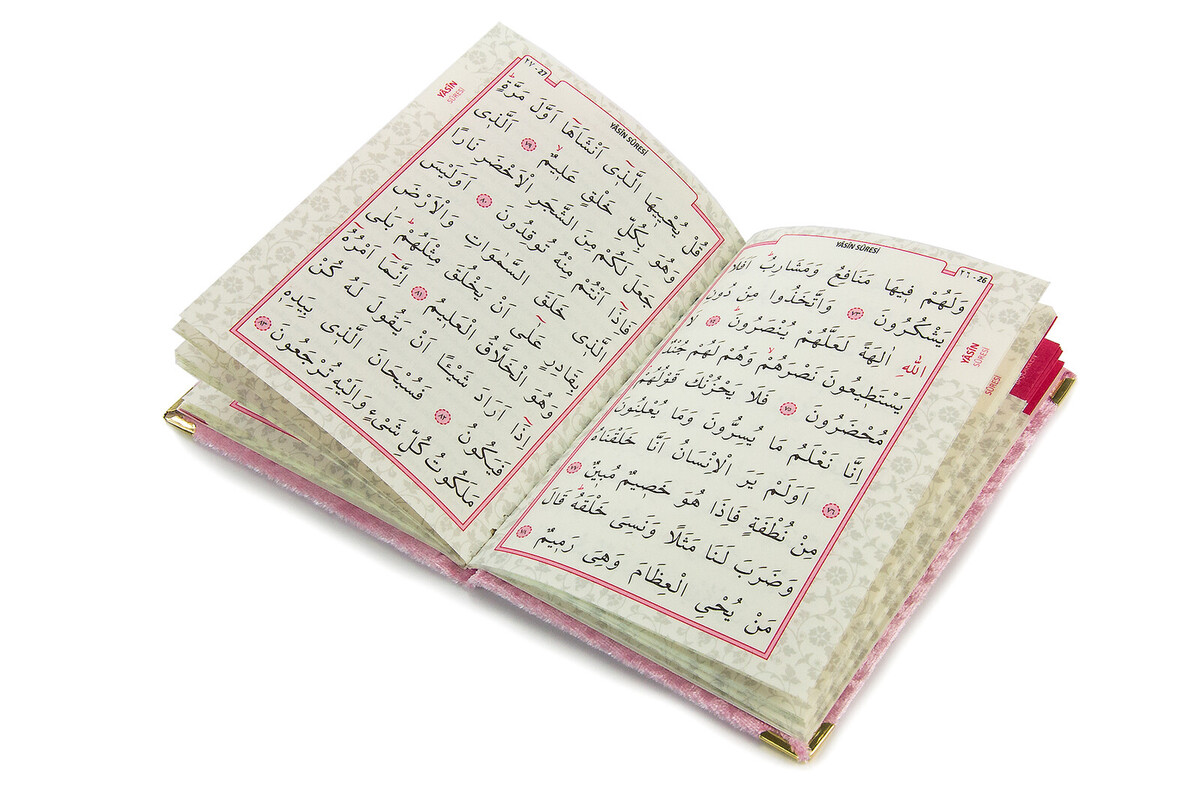 YÂSÎN SÛRESİ
٢٦ - 26
وَلَهُمْ فٖيهَا مَنَافِعُ وَمَشَارِبُؕ اَفَلَا
يَشْكُرُونَ ﴿٧٣﴾ وَاتَّخَذُوا مِنْ دُونِ
اللّٰهِ اٰلِهَةً لَعَلَّهُمْ يُنْصَرُونَؕ ﴿٧٤﴾ لَا
يَسْتَطٖيعُونَ نَصْرَهُمْۙ وَهُمْ لَهُمْ جُنْدٌ
مُحْضَرُونَ ﴿٧٥﴾ فَلَا يَحْزُنْكَ قَوْلُهُمْۢ
اِنَّا نَعْلَمُ مَا يُسِرُّونَ وَمَا يُعْلِنُونَ
﴿٧٦﴾ اَوَلَمْ يَرَ الْاِنْسَانُ اَنَّا خَلَقْنَاهُ
مِنْ نُطْفَةٍ فَاِذَا هُوَ خَصٖيمٌ مُبٖينٌ ﴿٧٧﴾
وَضَرَبَ لَنَا مَثَلًا وَنَسِيَ خَلْقَهُؕ قَالَ
مَنْ يُحْيِ الْعِظَامَ وَهِيَ رَمٖيمٌ ﴿٧٨﴾
YÂSÎN
SÛRESİ
SÛRESİ
YÂSÎN
SÛRESİ
٢٧ - 27
YÂSÎN SÛRESİ
قُلْ يُحْيٖيهَا الَّذٖٓي اَنْشَاَهَٓا اَوَّلَ مَرَّةٍؕ
وَهُوَ بِكُلِّ خَلْقٍ عَلٖيمٌۙ ﴿٧٩﴾ اَلَّذٖي
جَعَلَ لَكُمْ مِنَ الشَّجَرِ الْاَخْضَرِ نَارًا
فَاِذَٓا اَنْتُمْ مِنْهُ تُوقِدُونَ ﴿٨٠﴾ اَوَلَيْسَ
الَّذٖي خَلَقَ السَّمٰوَاتِ وَالْاَرْضَ
بِقَادِرٍ عَلٰٓى اَنْ يَخْلُقَ مِثْلَهُمْؕ بَلٰى
وَهُوَ الْخَلَّاقُ الْعَلٖيمُ ﴿٨١﴾ اِنَّمَٓا اَمْرُهُٓ
اِذَٓا اَرَادَ شَيْئًا اَنْ يَقُولَ لَهُ كُنْ
فَيَكُونُ ﴿٨٢﴾ فَسُبْحَانَ الَّذٖي بِيَدِهٖ
مَلَكُوتُ كُلِّ شَيْءٍ وَاِلَيْهِ تُرْجَعُونَ ﴿٨٣﴾